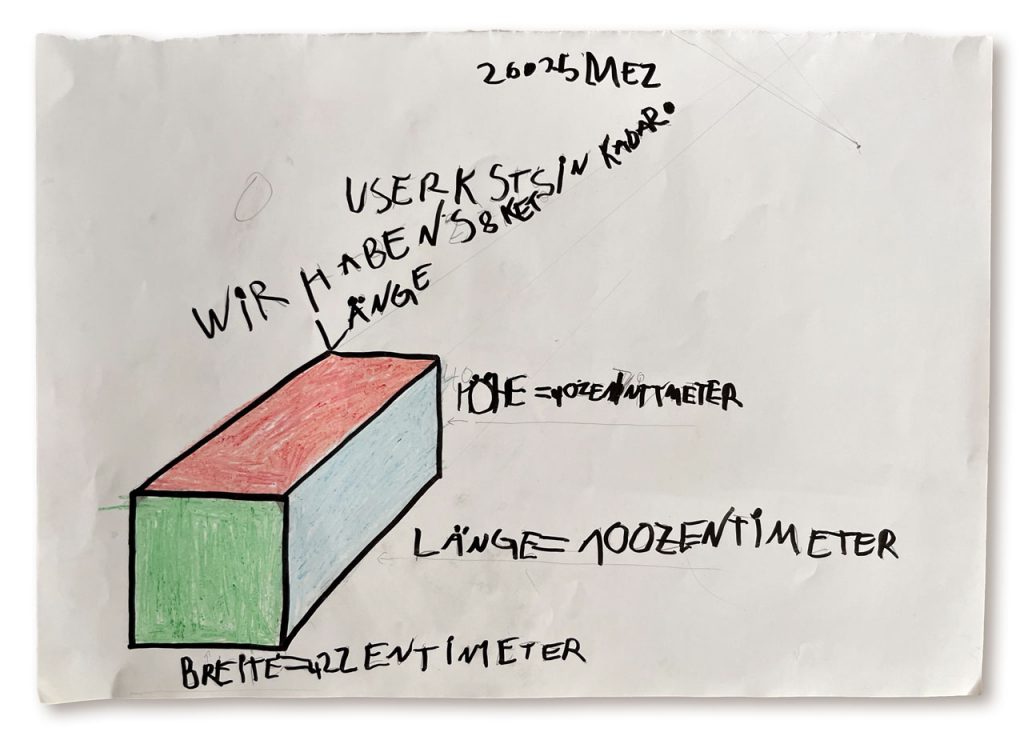 26025 MEZ
USERKSTSIN KADAR.
WIR HABENS 8 KET
LÄNGE
HÖHE = 40ZENTIMETER
LÄNGE = 100ZENTIMETER
BREITE = 42ZENTIMETER